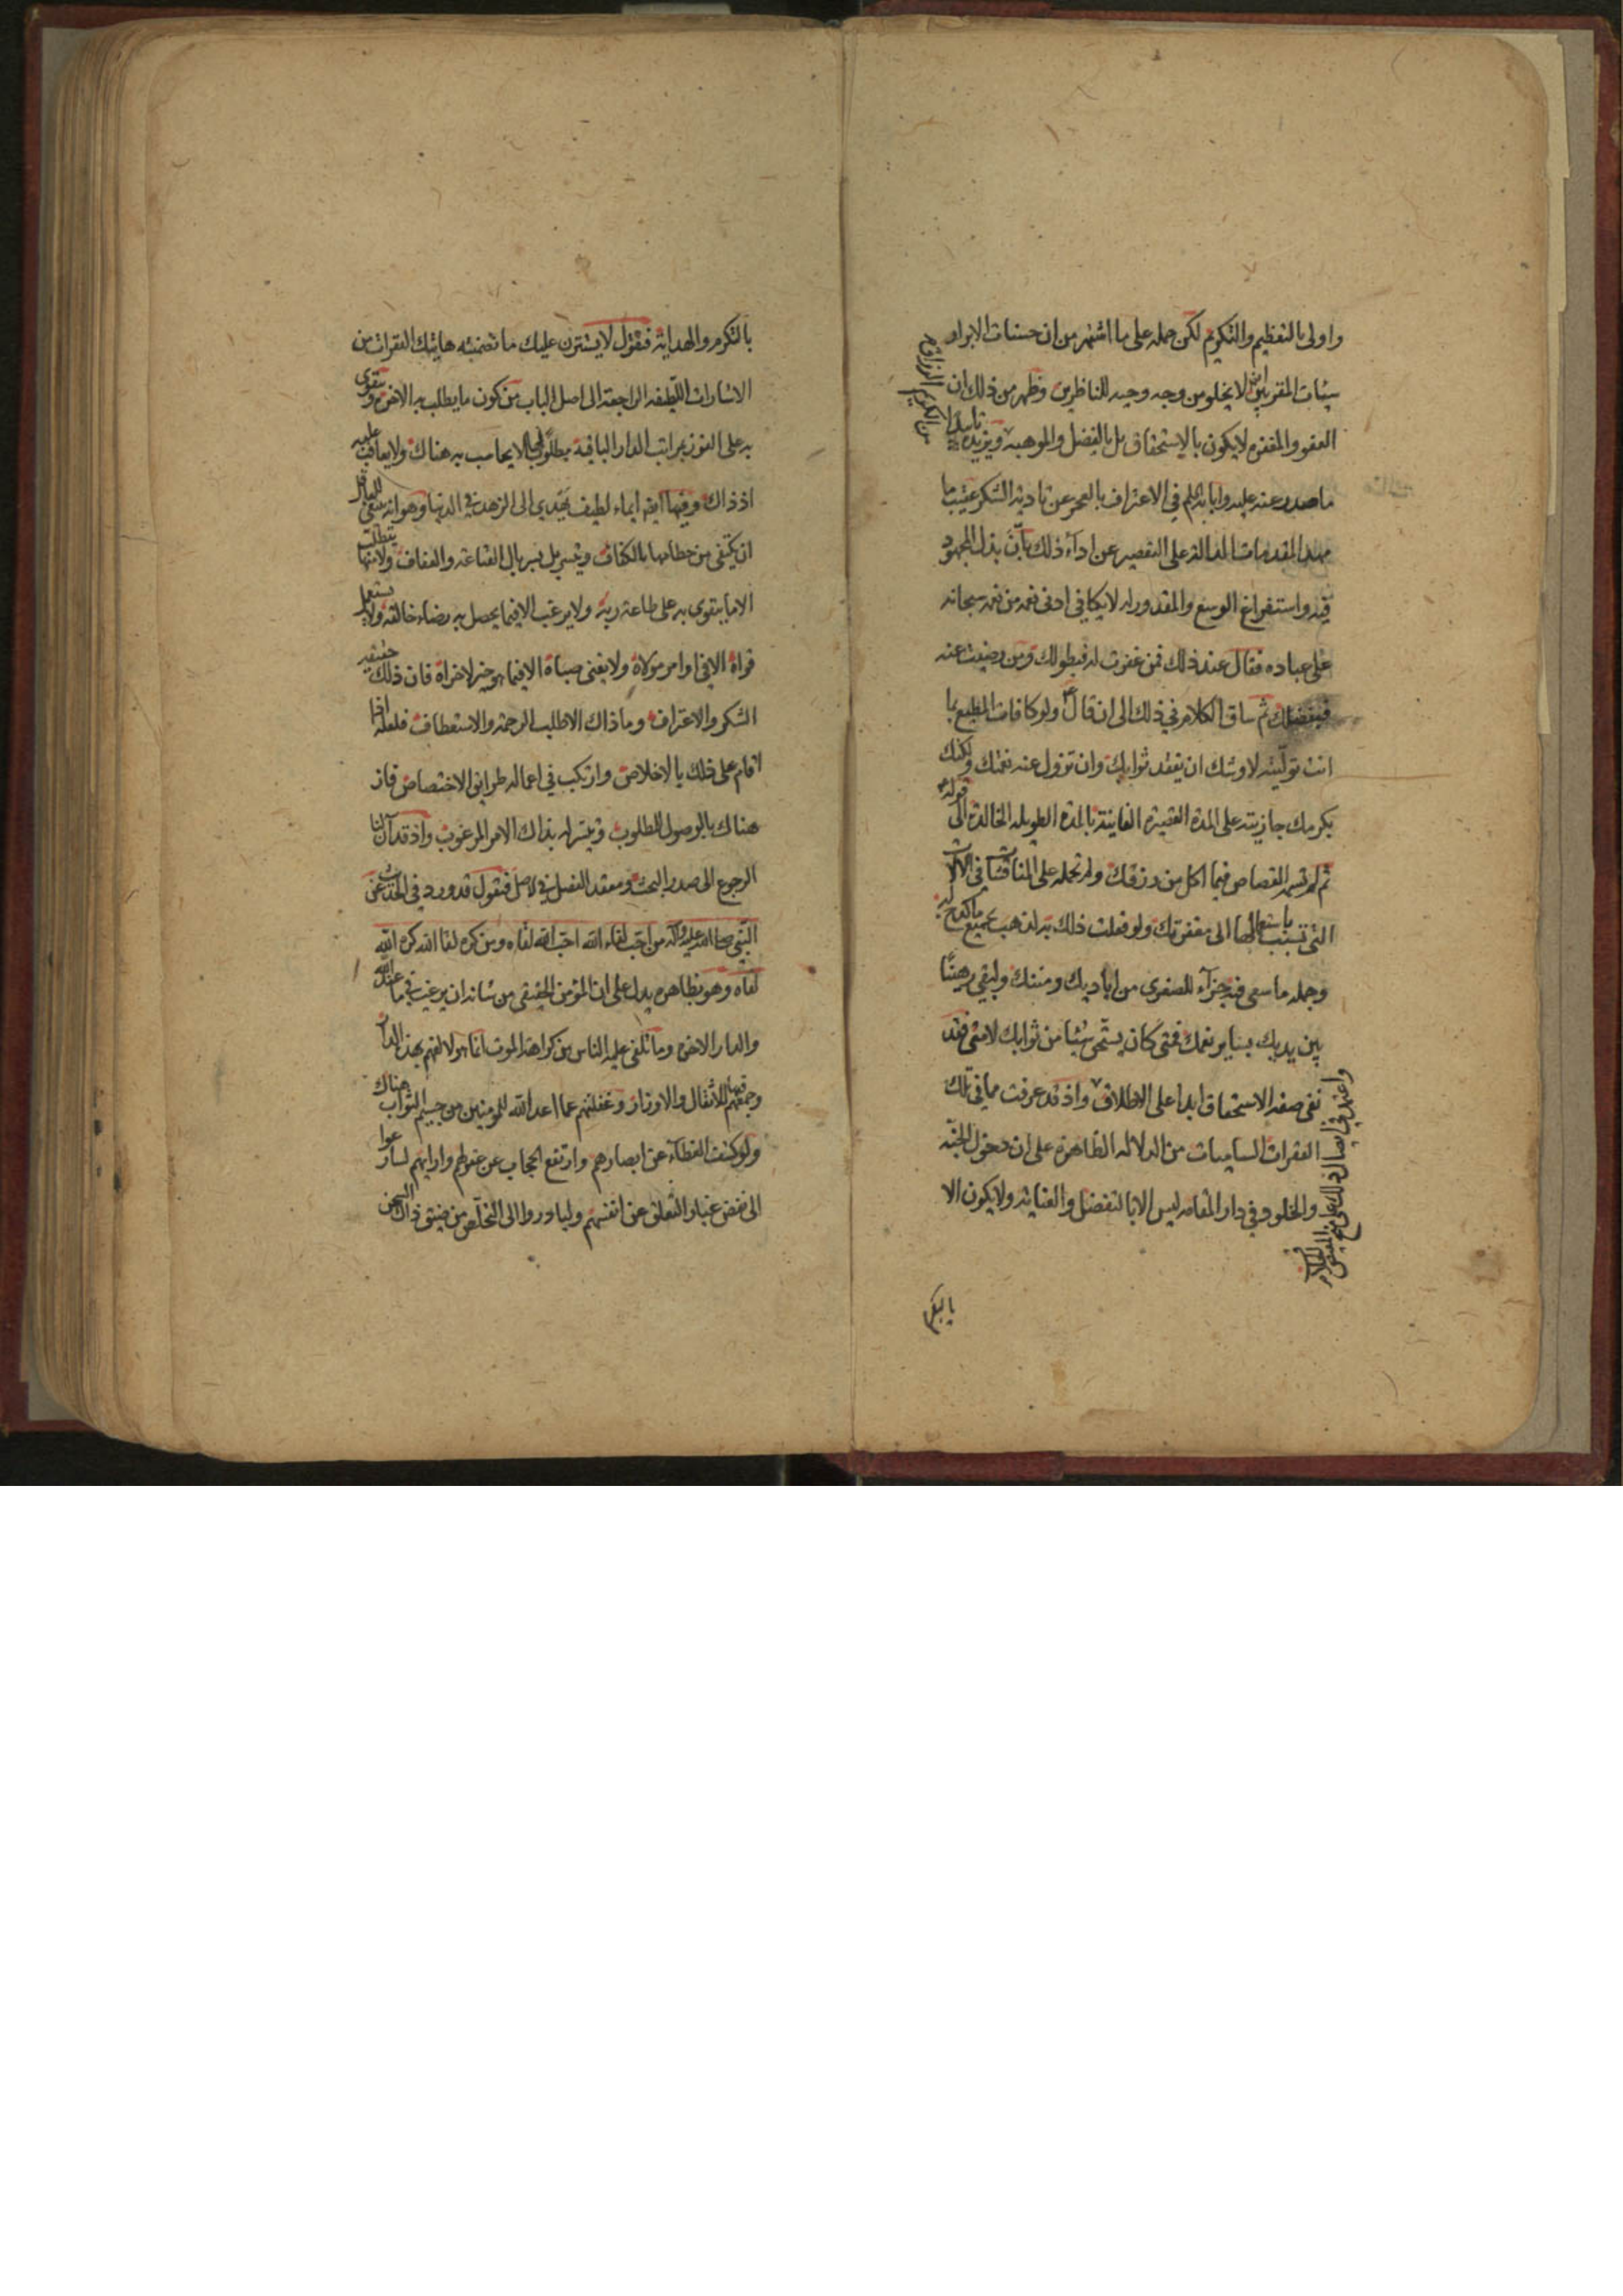 واولى بالتعظيم والتكريم لكن حمله على ما اشتهر من ان حسنات الابرار
سيئات المقربين ايض لا يخلو من وجه وجيه للناظرين وظهر من ذلك ان
العفو والمغفره لا يكون بالاستحقاق بل بالفضل والموهبه ويزيده تاييدا
ما صدر عنه عليه وابائه السلم في الاعتراف بالعجز عن تادية الشكر عقيب ما
مهد المقدمات الدالة على التقصير عن اداء ذلك بان بذل المجهود
فيه واستفراغ الوسع والمقدور له لا يكافي ادنى نعمه من نعمه سبحانه
على عباده فقال عند ذلك فمن غفرت له فبطولك ومن رضيت عنه
فبفضلك ثم ساق الكلام في ذلك الى ان قال ع ولو كافات المطيع بما
انت توليته لاوشك ان يفقد ثوابك وان تزول عنه نعمتك ولكنك
بكرمك جازيته على المدة القصيرة الفانية بالمدة الطويله الخالدة الى قوله
ثم لم تسمه القصاص فيما اكل من رزقك ولم تحمله على المناقشات في الالات
التي تسبب باستعمالها الى مغفرتك ولو فعلت ذلك به لذهب بجميع ما كدح له
وجمله ما سعى فيه جزاء للصغرى من اياديك ومننك ولبقي رهينا
بين يديك بساير نعمك فمتى كان يستحق شيئا من ثوابك لا متى فقد
نفى صفه الاستحقاق ابدا على الاطلاق واذ قد عرفت مما في تلك
الفقرات الساميات من الدلاله الظاهرة على ان دخول الجنه
والخلود في دار المقامه ليس الا بالتفضل والعناية ولا يكون الا
بالتكرم
بالتكرم والهداية فنقول لا يستترن عليك ما تضمنته هاتيك الفقرات من
الاشارات اللطيفه الراجعة الى اصل الباب من كون ما يطلب به الاخره ويتقوى
به على الفوز بمراتب الدار الباقية مطلوبا لا يحاسب به هناك ولا يعاقب عليه
اذ ذاك وفيها ايضا ايماء لطيف يهدي الى الزهد في الدنيا وهو انه ينبغي للعاقل
ان يكتفى من حطامها بالكفاف ويتسربل بسربال القناعة والعفاف ولا يتطلب منها
الا ما يتقوى به على طاعة ربه ولا يرغب الا فيما يحصل به رضاء خالقه ولا يستعمل
قواه الا في اوامر مولاه ولا يفنى صباه الا فيما هو خير لاخراه فان ذلك حقيقه
الشكر والاعتراف وما ذاك الا طلب الرحمة والاستعطاف فلعله اذا
اقام على ذلك بالاخلاص وارتكب في اعماله طرايق الاختصاص فاز
هناك بالوصول للمطلوب وتيسر له بذاك الامر المرغوب واذ قد آن لنا
الرجوع الى صدر البحث ومعقد الفصل في الاصل فنقول قد ورد في الحديث عن
النبي صلى الله عليه واله من احب لقاء الله احب الله لقاه ومن كره لقا الله كره الله
لقاه وهو بظاهره يدل على ان المؤمن الحقيقى من شانه ان يرغب في ما عند الله
والدار الاخره وما تلفى عليه الناس من كراهة الموت انما هو لالفهم بهذه الدار
وجمعهم فيها للاثقال والاوزار وغفلتهم عما اعد الله للمومنين من جسيم الثواب هناك
ولو كشف الغطاء عن ابصارهم وارتفع الحجاب عن عقولهم وارائهم لسارعوا
الى نفض غبار التعلق عن انفسهم ولبادروا الى التخلص من ضيق ذاك السجن